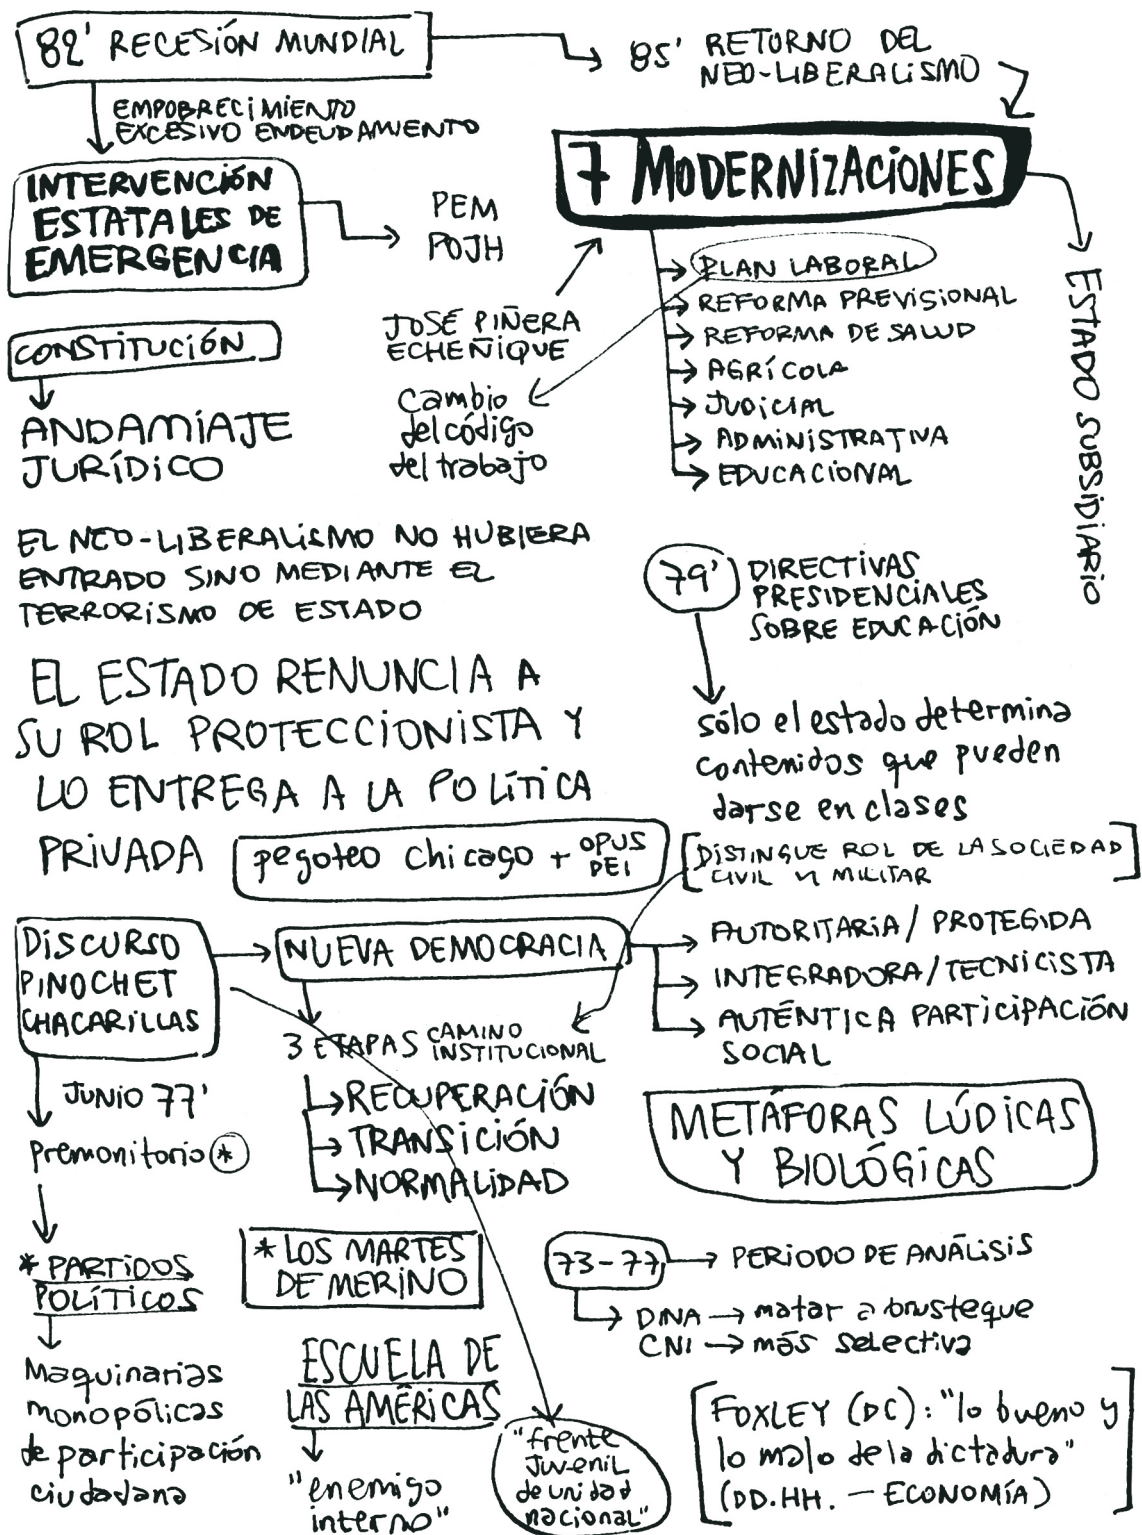 82' RECESIÓN MUNDIAL
85' RETORNO DEL
NEO-LIBERALISMO
EMPOBRECIMIENTO
EXCESIVO ENDEUDAMIENTO
INTERVENCIÓN
ESTATALES DE
EMERGENCIA
PEM
POJH
7 MODERNIZACIONES
PLAN LABORAL
REFORMA PREVISIONAL
REFORMA DE SALUD
AGRÍCOLA
JUDICIAL
ADMINISTRATIVA
EDUCACIONAL
ESTADO SUBSIDIARIO
JOSÉ PIÑERA
ECHEÑIQUE
Cambio
del código
del trabajo
CONSTITUCIÓN
ANDAMIAJE
JURÍDICO
EL NEO-LIBERALISMO NO HUBIERA
ENTRADO SINO MEDIANTE EL
TERRORISMO DE ESTADO
79' DIRECTIVAS
PRESIDENCIALES
SOBRE EDUCACIÓN
sólo el estado determina
contenidos que pueden
darse en clases
EL ESTADO RENUNCIA A
SU ROL PROTECCIONISTA Y
LO ENTREGA A LA POLÍTICA
PRIVADA
pegoteo chicago + OPUS
DEI
[DISTINGUE ROL DE LA SOCIEDAD
CIVIL Y MILITAR]
DISCURSO
PINOCHET
CHACARILLAS
NUEVA DEMOCRACIA
AUTORITARIA / PROTEGIDA
INTEGRADORA / TECNICISTA
AUTÉNTICA PARTICIPACIÓN
SOCIAL
3 ETAPAS CAMINO
INSTITUCIONAL
RECUPERACIÓN
TRANSICIÓN
NORMALIDAD
JUNIO 77'
Premonitorio *
METÁFORAS LÚDICAS
Y BIOLÓGICAS
* PARTIDOS
POLÍTICOS
Maquinarias
monopólicas
de participación
ciudadana
* LOS MARTES
DE MERINO
73-77 → PERIODO DE ANÁLISIS
DINA → matar a brusteque
CNI → más selectiva
ESCUELA DE
LAS AMÉRICAS
"enemigo
interno"
"frente
Juvenil
de unidad
nacional"
[FOXLEY (DC): "lo bueno y
lo malo de la dictadura"
(DD.HH. — ECONOMÍA)]